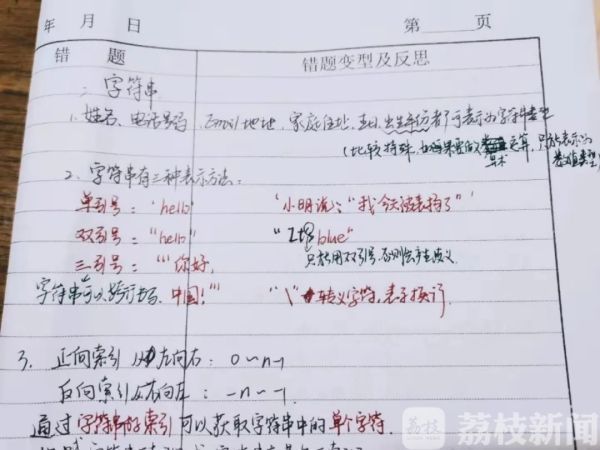 年 月 日 第 页
错 题 错题变型及反思
二 字符串
1. 姓名、电话号码、Email地址、家庭住址、出生年份都可表示为字符串类型
(比较特殊,如果要做算术运算,只能表示为数值类型)
2. 字符串有三种表示方法:
单引号:'hello' '小明说:"我今天被表扬了"'
双引号:"hello" "I'm blue"
只能用双引号,否则会产生歧义
三引号:'''你好,
字符串可以跨行书写 中国!''' "\"转义字符,表示换行.
3. 正向索引 从左向右:0~n-1
反向索引 从右向左:-n~-1
通过字符串的索引可以获取字符串中的单个字符.
荔枝 荔枝新闻